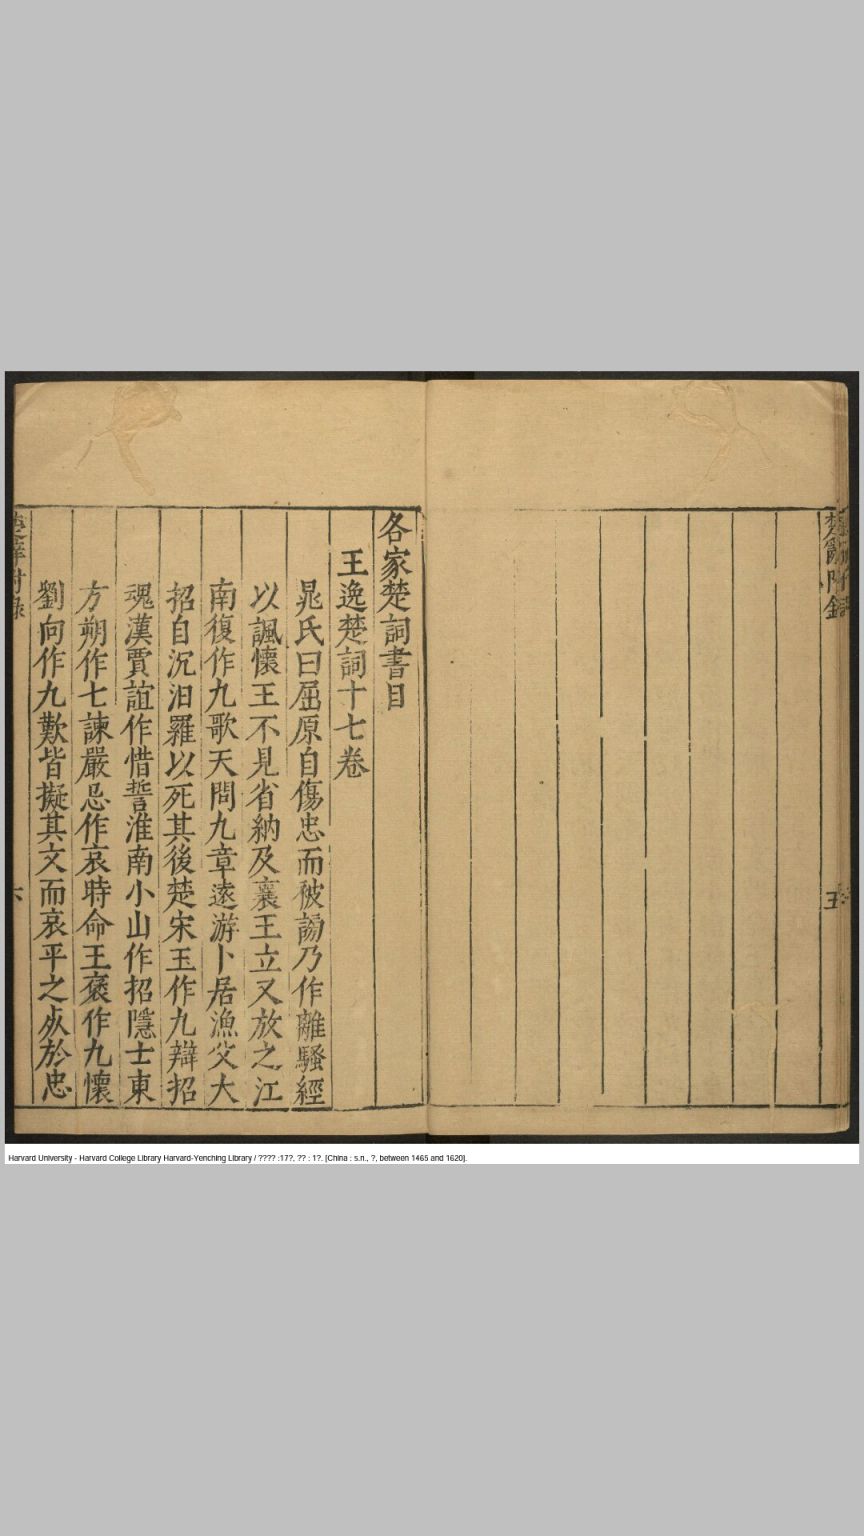 楚辭附錄
五
各家楚詞書目
王逸楚詞十七卷
晁氏曰屈原自傷忠而被謗乃作離騷經
以諷懷王不見省納及襄王立又放之江
南復作九歌天問九章遠游卜居漁父大
招自沉汨羅以死其後楚宋玉作九辯招
魂漢賈誼作惜誓淮南小山作招隱士東
方朔作七諫嚴忌作哀時命王褒作九懷
劉向作九歎皆擬其文而哀平之死於忠
楚辭附錄
六
Harvard University - Harvard College Library Harvard-Yenching Library / ???? :17?, ?? : 1?. [China : s.n., ?, between 1465 and 1620].